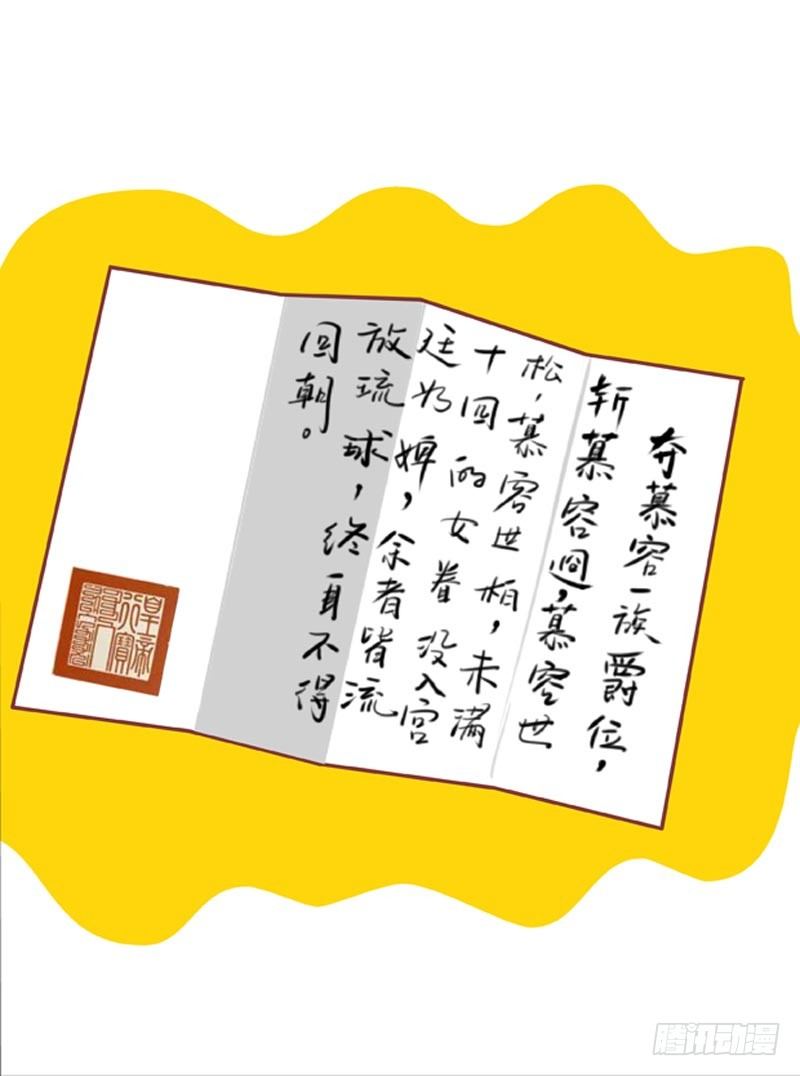 夺慕容一族爵位，
斩慕容迥，慕容世
松，慕容世柏，未满
十四的女眷没入宫
廷为婢，余者皆流
放琉球，终身不得
回朝。
皇帝
行寶
腾讯动漫